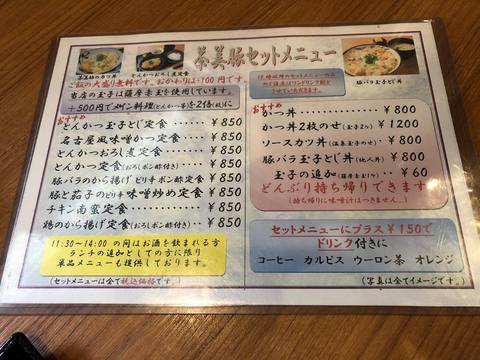 茶美豚セットメニュー
茶美豚のカツ丼
とんかつおろし煮定食
豚バラ玉子とじ丼
ご飯の大盛り無料です。おかわりは+100円です。
当店の玉子は薩摩赤玉を使用しています。
+500円でメイン料理(とんかつ等)を2倍(枚)に
おすすめ
とんかつ玉子とじ定食 ・・・ ¥850
名古屋風味噌かつ定食 ・・・ ¥850
とんかつおろし煮定食 ・・・ ¥850
とんかつ定食(おろしポン酢付き) ・・・ ¥850
豚バラのから揚げピリ辛ポン酢定食 ・・・ ¥850
豚と茄子のピリ辛味噌炒め定食 ・・・ ¥850
チキン南蛮定食 ・・・ ¥850
鶏のから揚げ定食(おろしポン酢付き) ・・・ ¥850
11:30~14:00 の間はお酒を飲まれる方
ランチの追加としての方に限り
単品メニューも提供しております。
(セットメニューは全て税込価格です。)
おすすめ
かつ丼 ・・・ ¥800
カツ丼2枚のせ(玉子2ケ) ・・・ ¥1200
ソースカツ丼(温泉玉子のせ) ・・・ ¥800
豚バラ玉子とじ丼(他人丼) ・・・ ¥800
玉子の追加(薩摩赤玉1ケ) ・・・ ¥60
どんぶり持ち帰りできます
(持ち帰りに味噌汁はつきません。)
セットメニューにプラス¥150で
ドリンク付きに
コーヒー カルピス ウーロン茶 オレンジ
(写真は全てイメージです。)